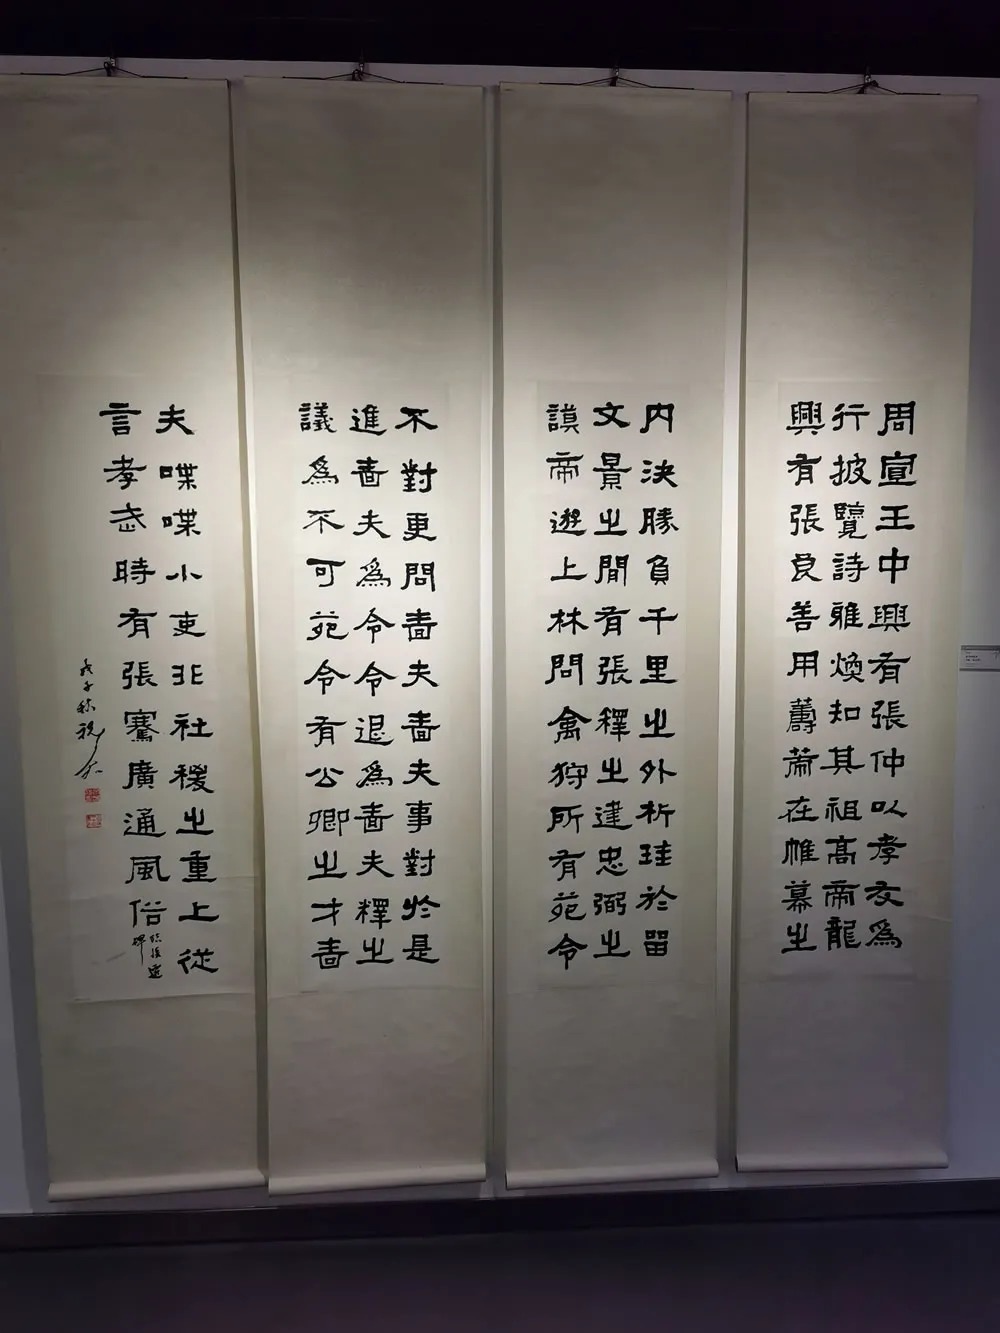 周宣王中興有張仲以孝友爲
行披覽詩雅煥知其祖高帝龍
興有張良善用籌策在帷幕之
内決勝負千里之外析珪於留
文景之間有張釋之建忠弼之
謨帝遊上林問禽狩所有苑令
不對更問嗇夫嗇夫事對於是
進嗇夫爲令令退爲嗇夫釋之
議爲不可苑令有公卿之才嗇
夫喋喋小吏非社稷之重上從
言孝武時有張騫廣通風俗
臨張遷
碑
戊子秋祝